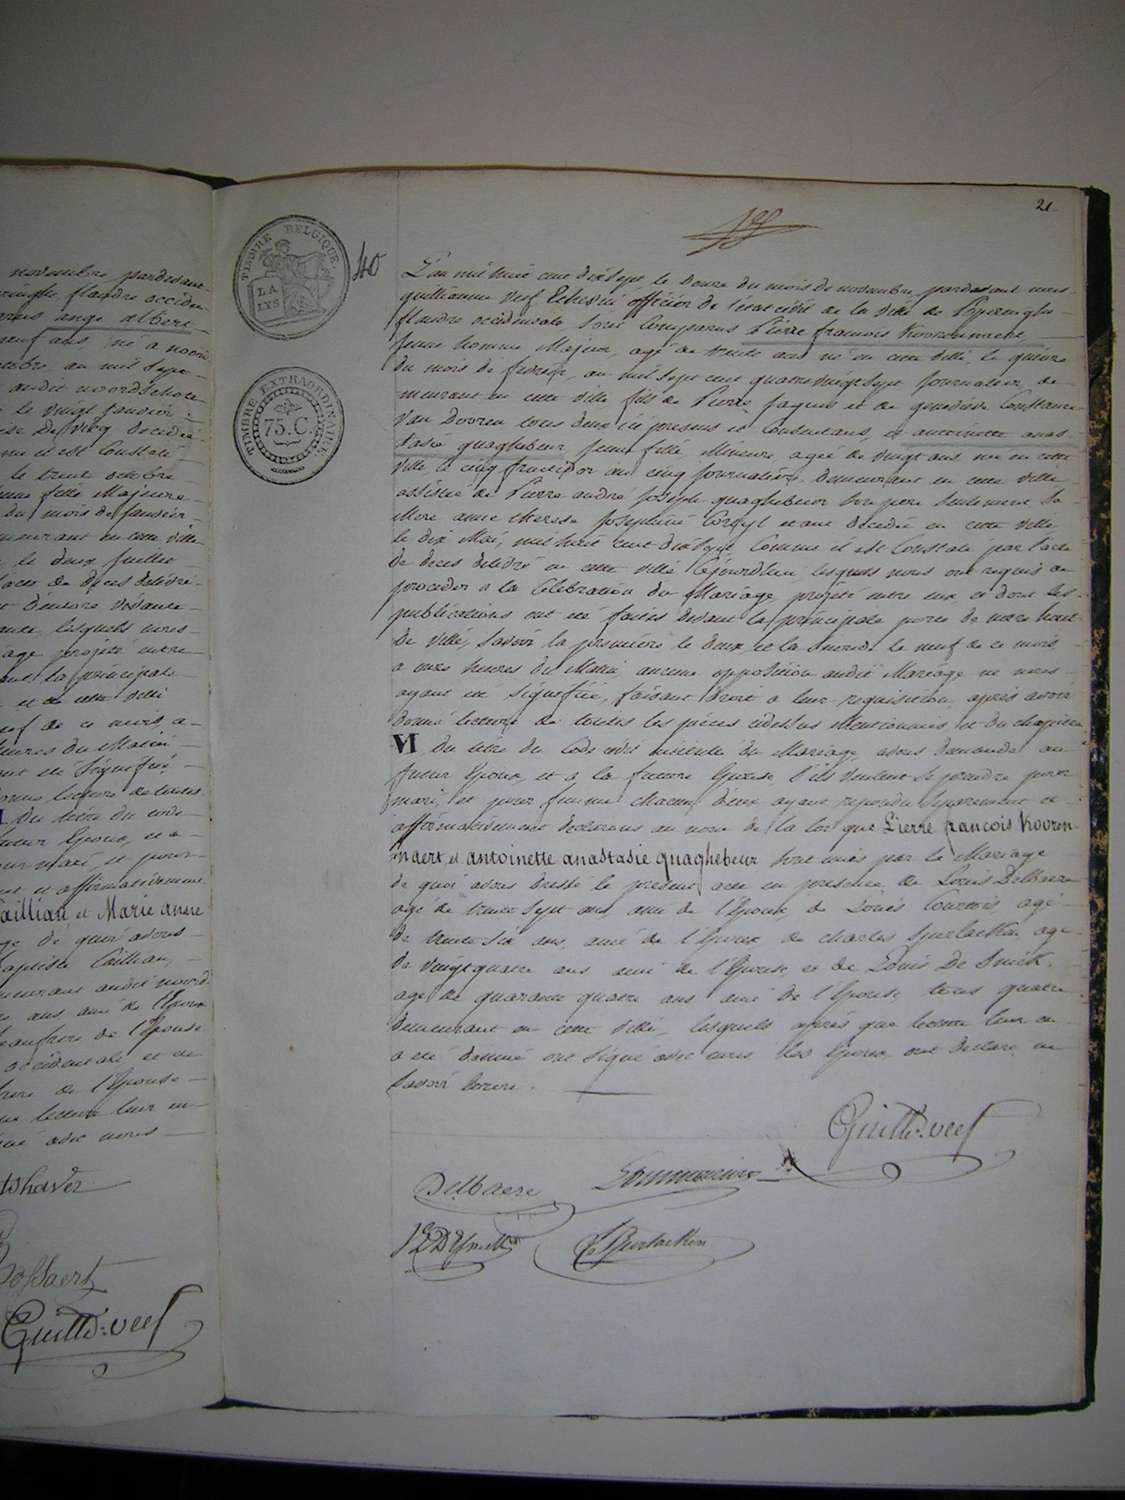 novembre pardevant
flandre occiden
ange albert
neuf ans né a noord
octobre au mil sept
audit noordschote
le vingt janvier
de vicq decedé
il est constaté
le trente octobre
fille majeure
du mois de janvier
demeurant en cette ville
le deux juillet
acte de deces delivré
lesquels nous
age projeté entre
la principale
et de cette ville
neuf de ce mois a
heures du matin
ont été signifiée
lecture de toutes
du titre du code
futur Epoux et a
mari et pour
et affirmativement
Caillian et Marie anne
de quoi avons
baptiste Caillian
demeurant audit noord
ans, ami de l'Epoux
beaufrere de l'Epouse
occidentale et de
frere de l'Epouse
lecture leur en
signé avec nous
Bossaert
Guille. veef
21
TIMBRE BELGIQUE
LA
LYS
40
TIMBRE EXTRAORDINAIRE
75. C.
L'an mil huit cent dixsept le douze du mois de novembre, pardevant nous
guillaume veef Echevin officier de l'état civil de la ville de Poperinghe
flandre occidentale sont comparus Pierre francois Koorenmaert
jeune homme Majeur, agé de trente ans né en cette ville le quinze
du mois de fevrier, au mil sept cent quatre vingt sept journalier, de
meurant en cette ville, fils de Pierre Jaques et de genevieve Constance
Van Dooren tous deux ici presens et Consentans, et antoinette anas
tasie quaghebeur jeune fille Mineure agée de vingt ans née en cette
ville le cinq fructidor an cinq journaliere, demeurant en cette ville
assistée de Pierre andré joseph quaghebeur son pere seulement sa
Mere anne therese josephine etant decedée en cette ville
le dix Mai, mil huit cent dixsept Comme il est Constaté par l'acte
de deces delivré en cette ville cejourdhui lesquels nous ont requis de
proceder a la Celebration du Mariage projeté entre eux et dont les
publications ont été faites devant la principale porte de notre hotel
de ville, savoir la premiere le deux et la seconde le neuf de ce mois,
a onze heures du Matin, aucune opposition audit Mariage ne nous
ayant été signifiée, faisant droit a leur requisition, apres avoir
donné lecture de toutes les pieces cidessus Mentionnées, et du chapitre
VI du titre du Code civil intitulé du Mariage avons demandé au
futur Epoux, et a la future Epouse, s'ils veulent se prendre pour
mari, et pour femme chacun d'eux ayant repondu separement et
affirmativement declarons au nom de la loi que Pierre francois Kooren
maert, et antoinette anastasie quaghebeur sont unis par le Mariage
de quoi avons dressé le present acte en presence de Louis Delbaere
agé de trente sept ans, ami de l'Epoux de Louis agé
de trente six ans, ami de l'Epoux de charles agé
de vingt quatre ans ami de l'Epouse et de Louis De
agé de quarante quatre ans ami de l'Epouse tous quatre
demeurant en cette ville, lesquels après que lecture leur en
a été donnée ont signé avec nous les Epoux ont declaré ne
savoir ecrire.
Guille. veef
Delbaere